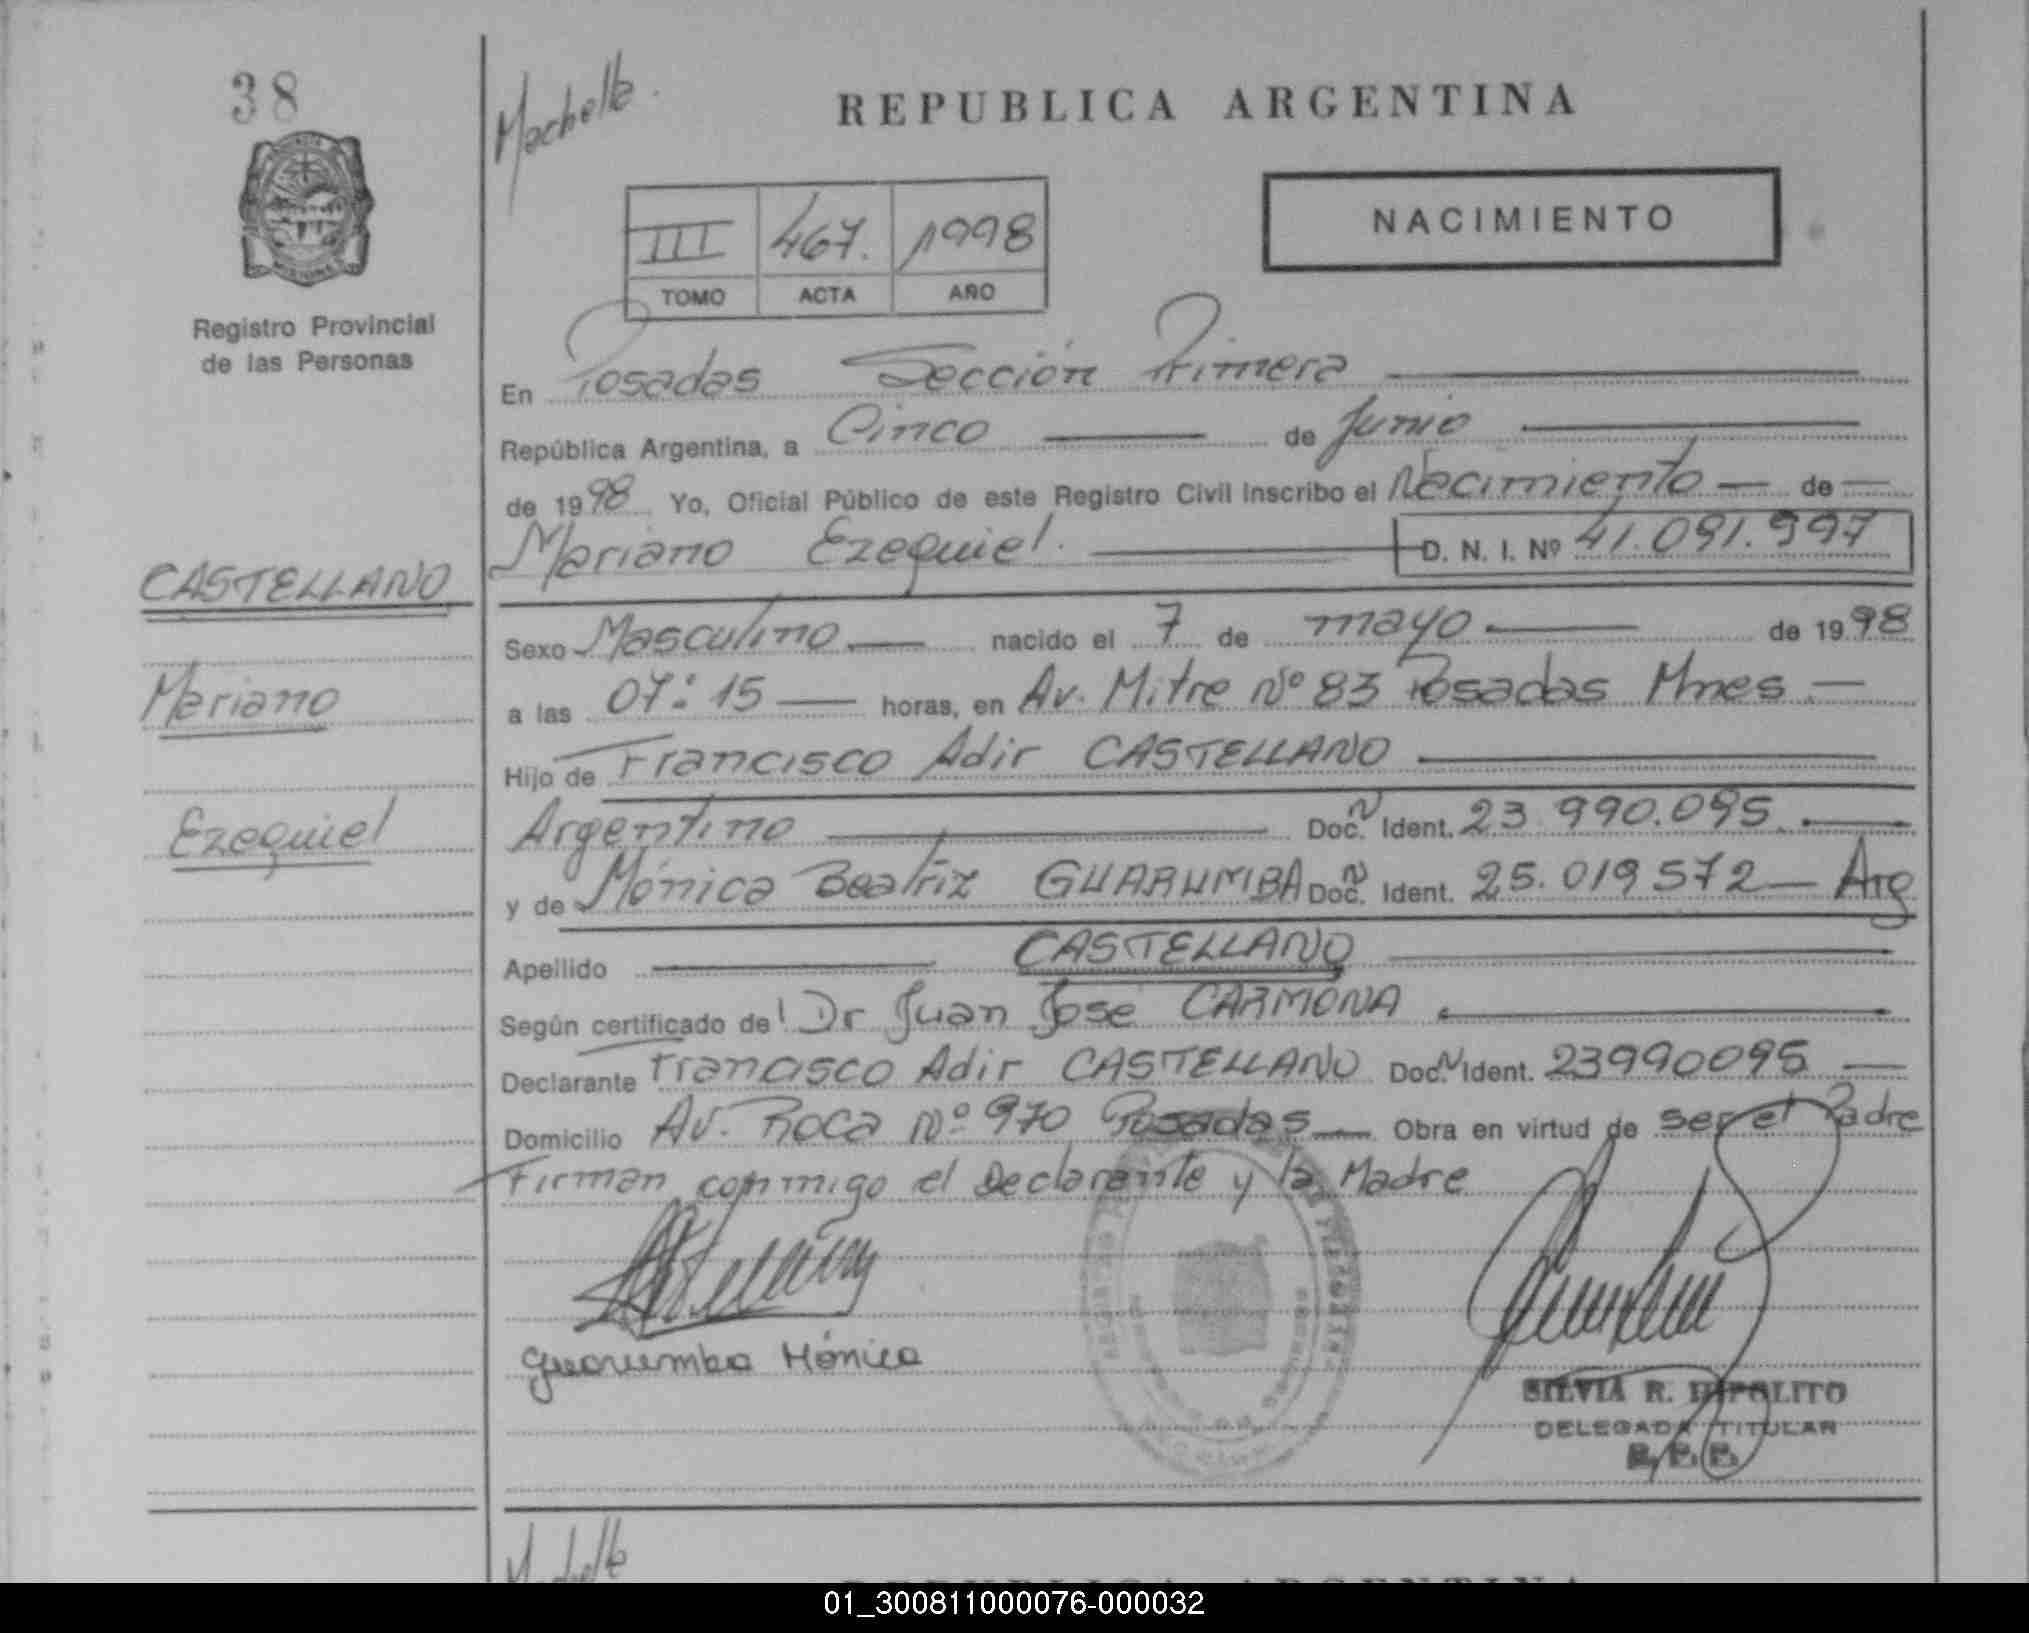 38
Machelle.
REPUBLICA ARGENTINA
NACIMIENTO
III 467. 1998
TOMO ACTA AÑO
Registro Provincial
de las Personas
En Posadas Sección Primera
República Argentina, a Cinco de Junio
de 1998 Yo, Oficial Público de este Registro Civil inscribo el Nacimiento de
Mariano Ezequiel. D. N. I. Nº 41.091.997
CASTELLANO
Mariano
Ezequiel
Sexo Masculino nacido el 7 de mayo de 1998
a las 07:15 horas, en Av. Mitre Nº 83 Posadas Mnes
Hijo de Francisco Adir CASTELLANO
Argentino Doc. Ident. 23.990.095
y de Mónica Beatriz GUARUMBA Doc. Ident. 25.019572 Arg
Apellido CASTELLANO
Según certificado del Dr Juan José CARMONA
Declarante Francisco Adir CASTELLANO Doc. Ident. 23990095
Domicilio Av. Roca Nº 970 Posadas Obra en virtud de ser el Padre
Firman conmigo el Declarante y la Madre
Guarumba Mónica
SILVIA R. HIPOLITO
DELEGADA TITULAR
R. P. P.
REPUBLICA ARGENTINA
01_300811000076-000032